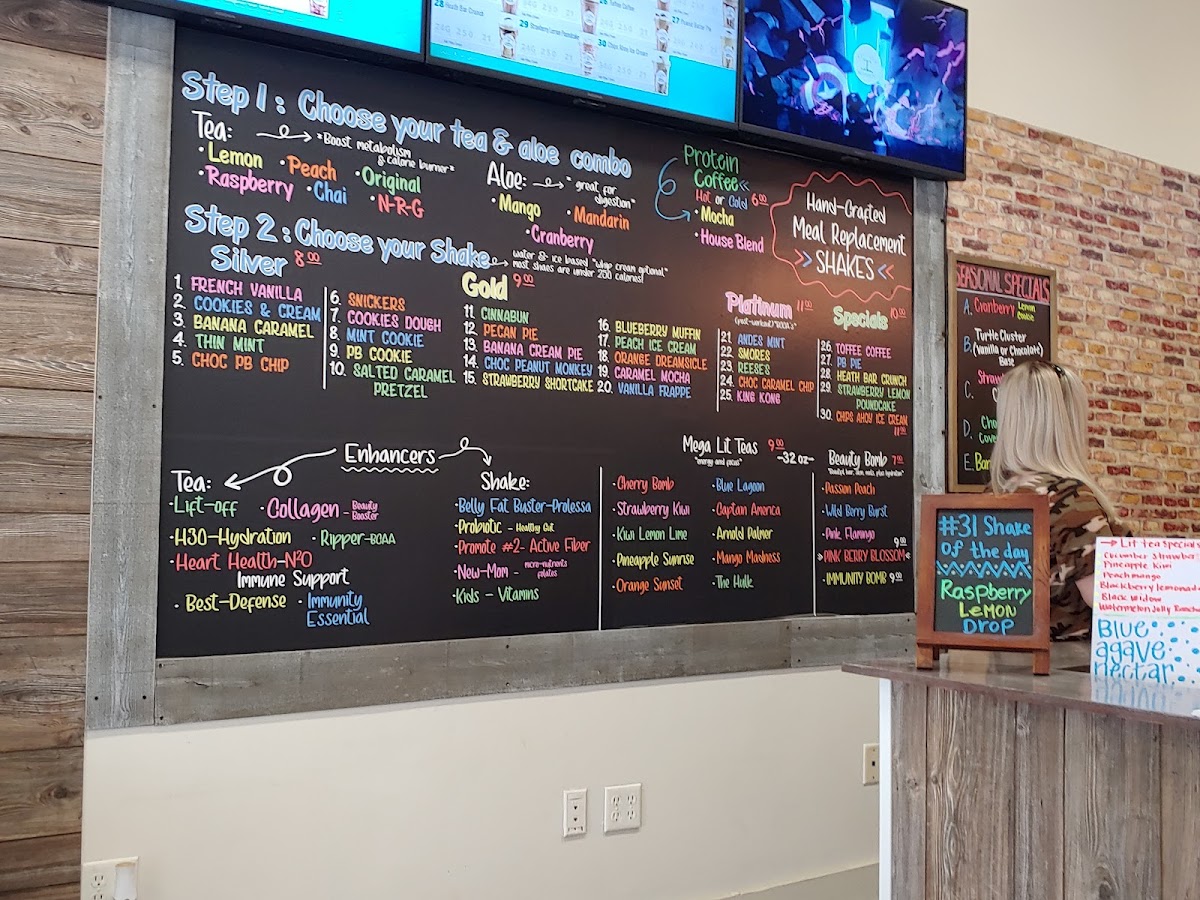 28 Heath Bar Crunch
30 Chips Ahoy Ice Cream
Step 1: Choose your tea & aloe combo
Tea: "Boost metabolism & calorie burner"
• Lemon • Peach • Original
• Raspberry • Chai • N-R-G
Aloe: "great for digestion"
• Mango • Mandarin
• Cranberry
Protein Coffee
Hot or Cold 6.00
• Mocha
• House Blend
Hand-Crafted
Meal Replacement
SHAKES
Step 2: Choose your Shake
water & ice based "whip cream optional"
most shakes are under 250 calories!
Silver 8.00
1. FRENCH VANILLA
2. COOKIES & CREAM
3. BANANA CARAMEL
4. THIN MINT
5. CHOC PB CHIP
6. SNICKERS
7. COOKIES DOUGH
8. MINT COOKIE
9. PB COOKIE
10. SALTED CARAMEL
PRETZEL
Gold 9.00
11. CINNABUN
12. PECAN PIE
13. BANANA CREAM PIE
14. CHOC PEANUT MONKEY
15. STRAWBERRY SHORTCAKE
16. BLUEBERRY MUFFIN
17. PEACH ICE CREAM
18. ORANGE DREAMSICLE
19. CARAMEL MOCHA
20. VANILLA FRAPPE
Platinum 11.00
21. ANDES MINT
22. SMORES
23. REESE'S
24. CHOC CARAMEL CHIP
25. KING KONG
Specials 10.00
26. TOFFEE COFFEE
27. PB PIE
28. HEATH BAR CRUNCH
29. STRAWBERRY LEMON
POUNDCAKE
30. CHIPS AHOY ICE CREAM
11.00
Enhancers
Tea:
• Lift-off • Collagen - Beauty Booster
• H30-Hydration • Ripper-BCAA
• Heart Health-N2O
Immune Support
• Best-Defense • Immunity
Essential
Shake:
• Belly Fat Buster-Prolessa
• Probiotic - Healthy Gut
• Promote #2- Active Fiber
• New-Mom - micro-nutrients folates
• Kids - Vitamins
Mega Lit Teas 9.00
"energy and focus" -32 oz-
• Cherry Bomb
• Strawberry Kiwi
• Kiwi Lemon Lime
• Pineapple Sunrise
• Orange Sunset
• Blue Lagoon
• Captain America
• Arnold Palmer
• Mango Madness
• The Hulk
Beauty Bomb 7.00
• Passion Peach
• Wild Berry Burst
• Pink Flamingo
9.00
»PINK BERRY BLOSSOM«
• IMMUNITY BOMB 9.00
SEASONAL SPECIALS
A. Cranberry Lemon Cookie
B. Turtle Cluster
(Vanilla or Chocolate)
Base
C.
D.
E.
#31 Shake
Of the day
Raspberry
LeMON
DROP
→ Lit tea specials
Cucumber Strawberry
Pineapple Kiwi
Peach mango
Blackberry lemonade
Black Widow
Watermelon Jolly Rancher
Blue
agave
nectar